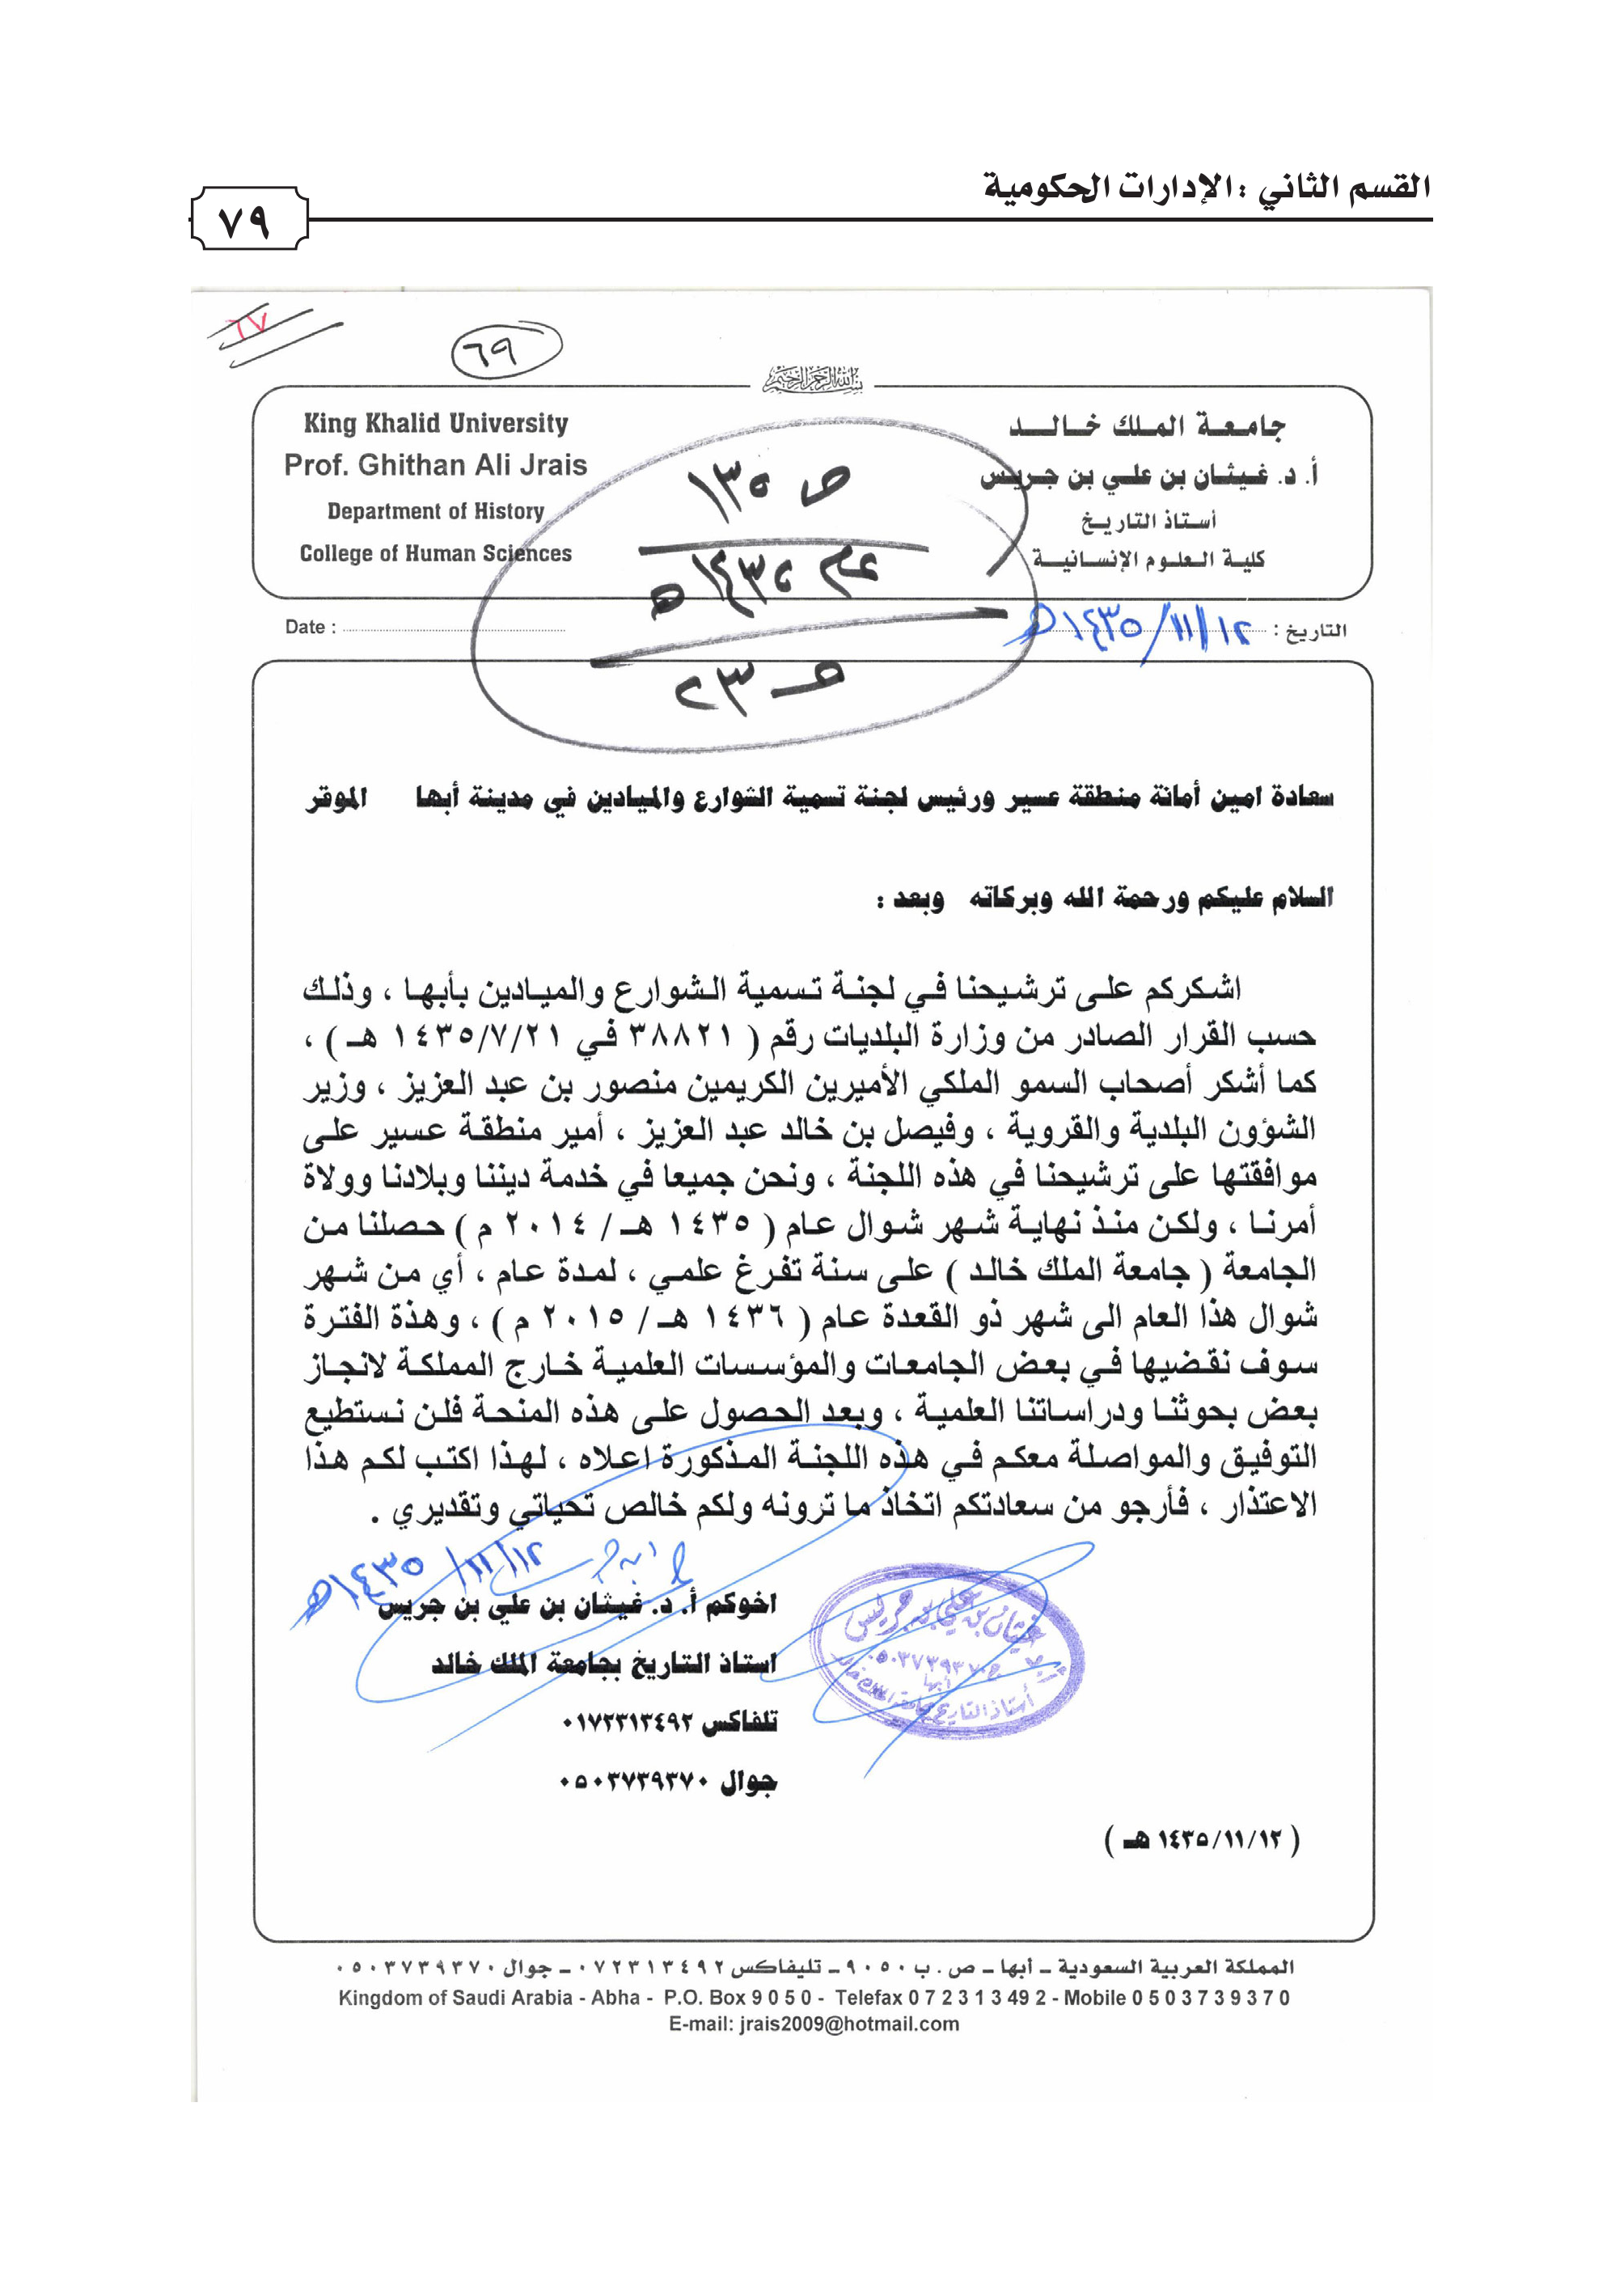 القسم الثاني : الإدارات الحكومية
٧٩
٦٧
٦٩
بسم الله الرحمن الرحيم
King Khalid University
Prof. Ghithan Ali Jrais
Department of History
College of Human Sciences
جامعة الملك خالد
أ. د. غيثان بن علي بن جريس
أستاذ التاريخ
كلية العلوم الإنسانية
ص ١٣٥
عام ١٤٣٥ هـ
ص ٢٣
Date :
التاريخ : ١٢/١١/١٤٣٥هـ
سعادة امين أمانة منطقة عسير ورئيس لجنة تسمية الشوارع والميادين في مدينة أبها الموقر
السلام عليكم ورحمة الله وبركاته وبعد :
اشكركم على ترشيحنا في لجنة تسمية الشوارع والميادين بأبها ، وذلك
حسب القرار الصادر من وزارة البلديات رقم ( ٣٨٨٢١ في ١٤٣٥/٧/٢١ هـ ) ،
كما أشكر أصحاب السمو الملكي الأميرين الكريمين منصور بن عبد العزيز ، وزير
الشؤون البلدية والقروية ، وفيصل بن خالد عبد العزيز ، أمير منطقة عسير على
موافقتها على ترشيحنا في هذه اللجنة ، ونحن جميعا في خدمة ديننا وبلادنا وولاة
أمرنا ، ولكن منذ نهاية شهر شوال عام ( ١٤٣٥ هـ / ٢٠١٤ م ) حصلنا من
الجامعة ( جامعة الملك خالد ) على سنة تفرغ علمي ، لمدة عام ، أي من شهر
شوال هذا العام الى شهر ذو القعدة عام ( ١٤٣٦ هـ / ٢٠١٥ م ) ، وهذة الفترة
سوف نقضيها في بعض الجامعات والمؤسسات العلمية خارج المملكة لانجاز
بعض بحوثنا ودراساتنا العلمية ، وبعد الحصول على هذه المنحة فلن نستطيع
التوفيق والمواصلة معكم في هذه اللجنة المذكورة اعلاه ، لهذا اكتب لكم هذا
الاعتذار ، فأرجو من سعادتكم اتخاذ ما ترونه ولكم خالص تحياتي وتقديري .
١٢/١١/١٤٣٥هـ
اخوكم أ. د. غيثان بن علي بن جريس
استاذ التاريخ بجامعة الملك خالد
تلفاكس ٠١٧٢٣١٣٤٩٢
جوال ٠٥٠٣٧٣٩٣٧٠
غيثان بن علي بن جريس
ج ٠٥٠٣٧٣٩٣٧٠
أبها
أستاذ التاريخ بجامعة الملك خالد
( ١٤٣٥/١١/١٢ هـ )
المملكة العربية السعودية – أبها – ص . ب ٩٠٥٠ – تليفاكس ٠٧٢٣١٣٤٩٢ – جوال ٠٥٠٣٧٣٩٣٧٠
Kingdom of Saudi Arabia - Abha - P.O. Box 9 0 5 0 - Telefax 0 7 2 3 1 3 49 2 - Mobile 0 5 0 3 7 3 9 3 7 0
E-mail: jrais2009@hotmail.com